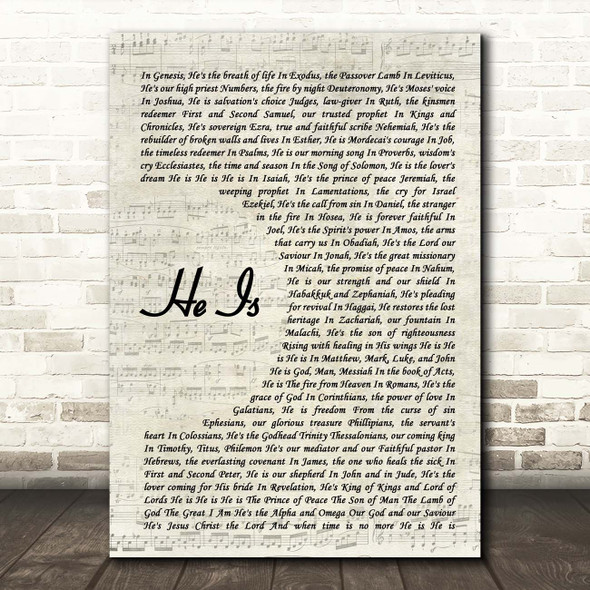 In Genesis, He's the breath of life In Exodus, the Passover Lamb In Leviticus,
He's our high priest Numbers, the fire by night Deuteronomy, He's Moses' voice
In Joshua, He is salvation's choice Judges, law-giver In Ruth, the kinsmen
redeemer First and Second Samuel, our trusted prophet In Kings and
Chronicles, He's sovereign Ezra, true and faithful scribe Nehemiah, He's the
rebuilder of broken walls and lives In Esther, He is Mordecai's courage In Job,
the timeless redeemer In Psalms, He is our morning song In Proverbs, wisdom's
cry Ecclesiastes, the time and season In the Song of Solomon, He is the lover's
dream He is He is He is In Isaiah, He's the prince of peace Jeremiah, the
weeping prophet In Lamentations, the cry for Israel
Ezekiel, He's the call from sin In Daniel, the stranger
in the fire In Hosea, He is forever faithful In
Joel, He's the Spirit's power In Amos, the arms
that carry us In Obadiah, He's the Lord our
Saviour In Jonah, He's the great missionary
In Micah, the promise of peace In Nahum,
He is our strength and our shield In
Habakkuk and Zephaniah, He's pleading
for revival In Haggai, He restores the lost
heritage In Zachariah, our fountain In
Malachi, He's the son of righteousness
Rising with healing in His wings He is He
is He is In Matthew, Mark, Luke, and John
He is God, Man, Messiah In the book of Acts,
He is The fire from Heaven In Romans, He's the
grace of God In Corinthians, the power of love In
Galatians, He is freedom From the curse of sin
Ephesians, our glorious treasure Phillipians, the servant's
heart In Colossians, He's the Godhead Trinity Thessalonians, our coming king
In Timothy, Titus, Philemon He's our mediator and our Faithful pastor In
Hebrews, the everlasting covenant In James, the one who heals the sick In
First and Second Peter, He is our shepherd In John and in Jude, He's the
lover coming for His bride In Revelation, He's King of Kings and Lord of
Lords He is He is He is The Prince of Peace The Son of Man The Lamb of
God The Great I Am He's the Alpha and Omega Our God and our Saviour
He's Jesus Christ the Lord And when time is no more He is He is
He Is